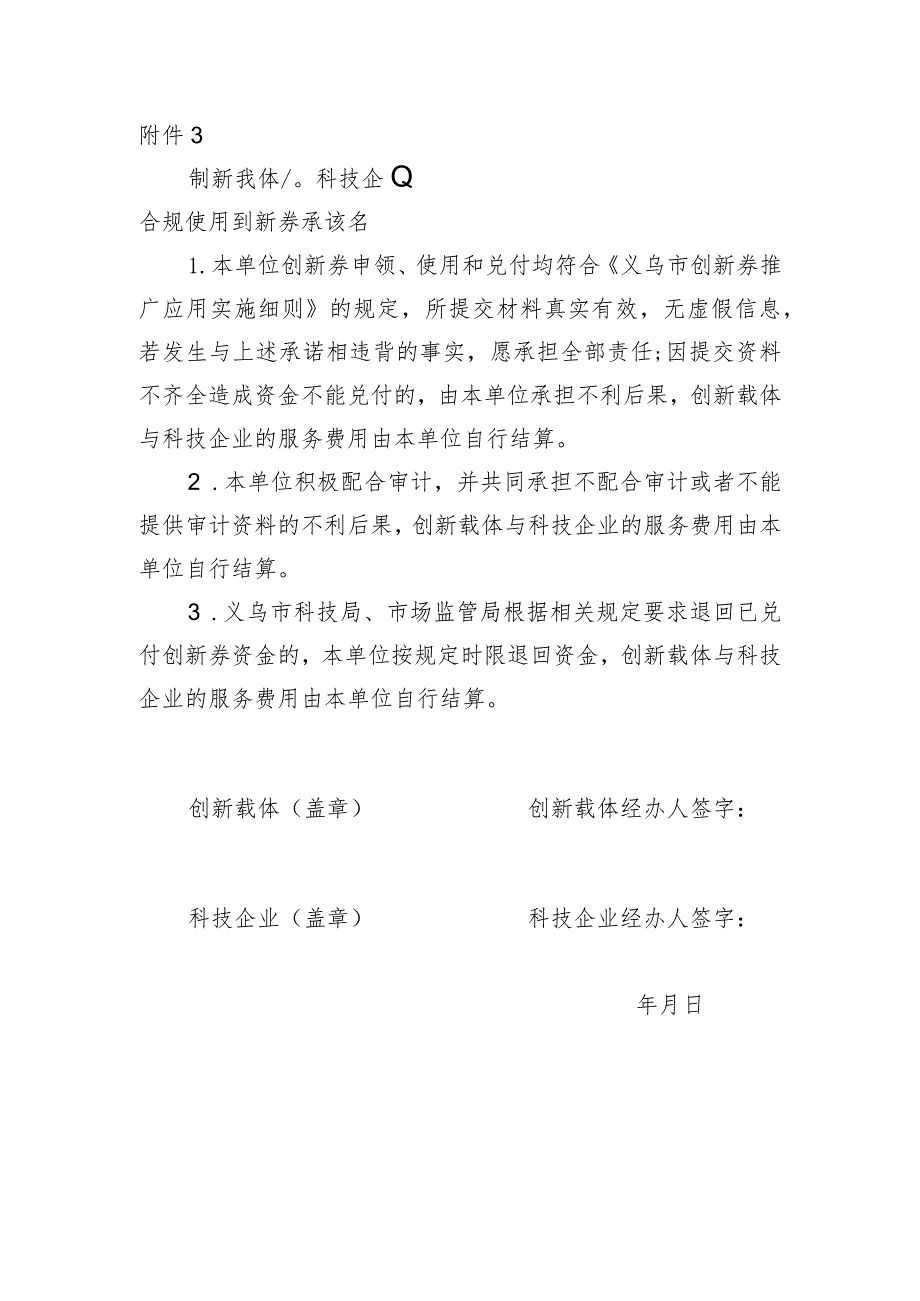 附件3
制新我体/。科技企Q
合规使用到新券承该名
1.本单位创新券申领、使用和兑付均符合《义乌市创新券推
广应用实施细则》的规定，所提交材料真实有效，无虚假信息，
若发生与上述承诺相违背的事实，愿承担全部责任;因提交资料
不齐全造成资金不能兑付的，由本单位承担不利后果，创新载体
与科技企业的服务费用由本单位自行结算。
2.本单位积极配合审计，并共同承担不配合审计或者不能
提供审计资料的不利后果，创新载体与科技企业的服务费用由本
单位自行结算。
3.义乌市科技局、市场监管局根据相关规定要求退回已兑
付创新券资金的，本单位按规定时限退回资金，创新载体与科技
企业的服务费用由本单位自行结算。
创新载体（盖章） 创新载体经办人签字：
科技企业（盖章） 科技企业经办人签字：
年月日